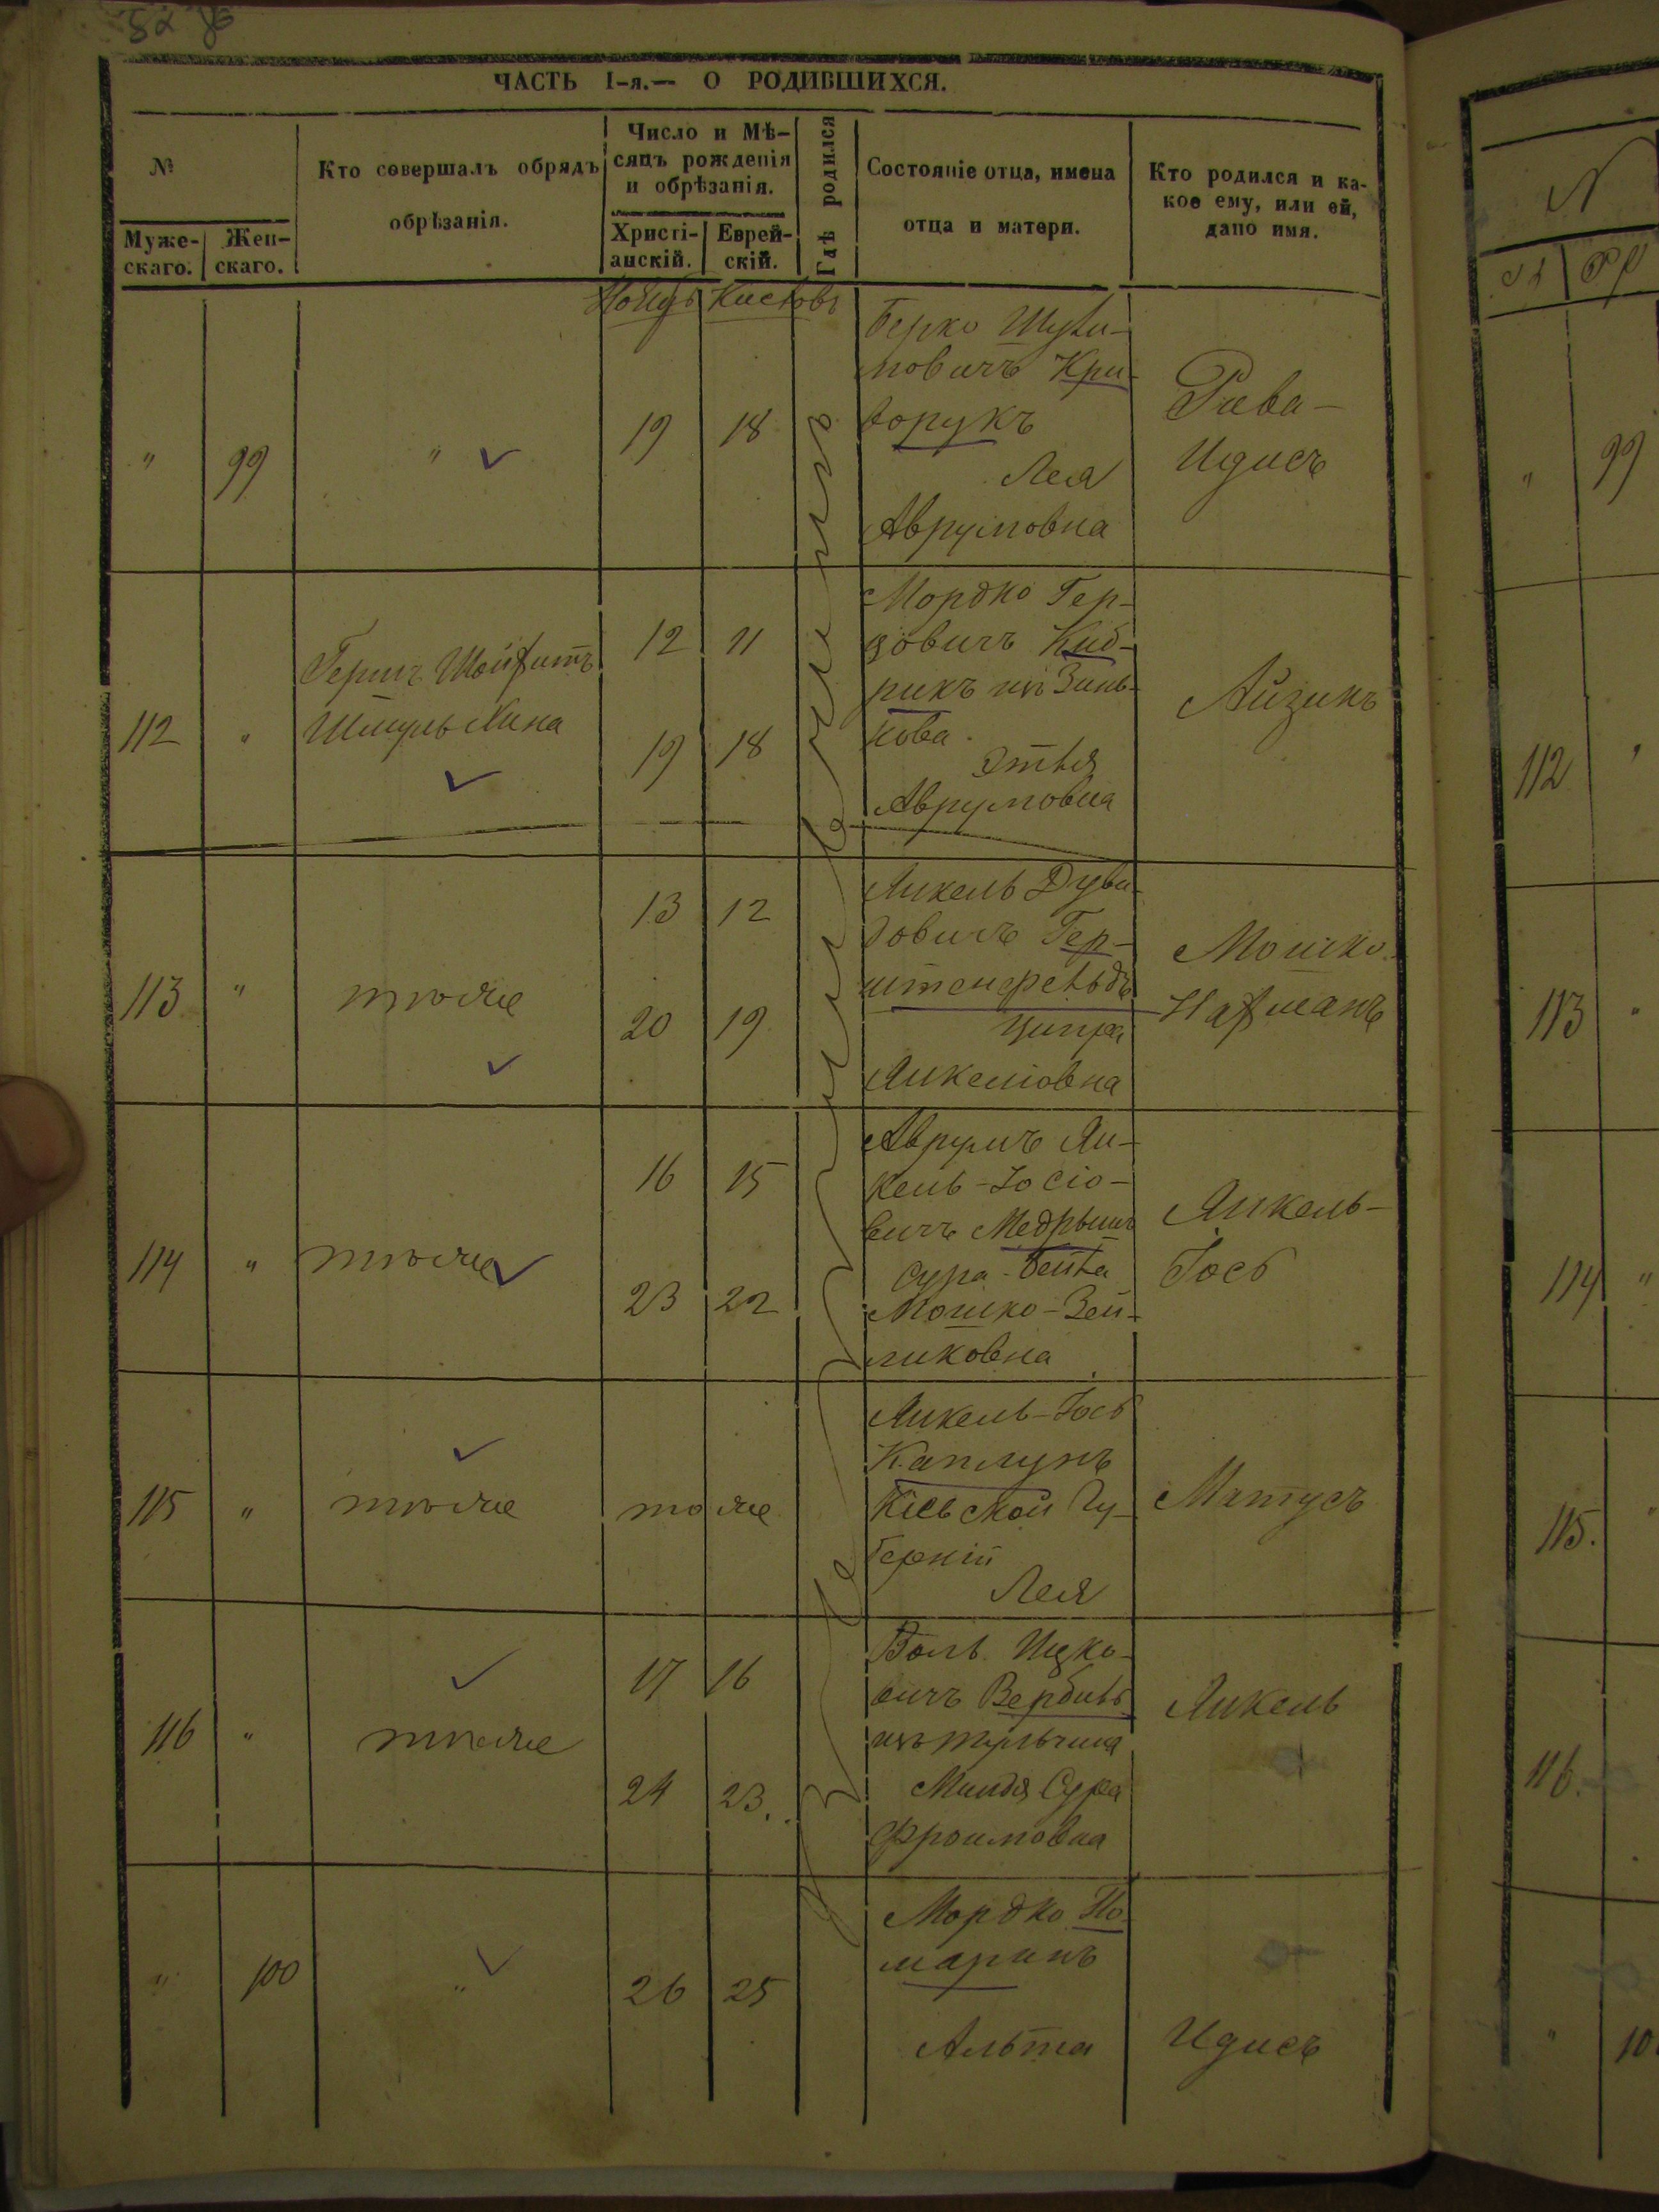 ЧАСТЬ I-я.— О РОДИВШИХСЯ.
№
Муже-
скаго.
Жен-
скаго.
Кто совершалъ обрядъ
обрѣзанія.
Число и Мѣ-
сяцъ рожденія
и обрѣзанія.
Христі-
анскій.
Еврей-
скій.
Гдѣ родился
Состояніе отца, имена
отца и матери.
Кто родился и ка-
кое ему, или ей,
дано имя.
Кислевъ
" 99 "
19 18
Берко
мовичъ Кри-
ворукъ
Лея
Аврумовна
Рива-
Идисъ
112 "
Гершъ
Шмуль
12 11
19 18
Мордко Гер-
Зинь-
кова.
Аврумовна
Айзикъ
113 " тоже
13 12
20 19
Янкель Дуви-
довичъ Гер-
штенфельдъ
Ципра
Янкеліовна
Мошко
Нахманъ
114 " тоже
16 15
23 22
Аврумъ Ян-
кель-Іосіо-
вичъ Медрышъ
Сура-Бейла
Мошко-Зей-
ликовна
Янкель-
Іось
115 " тоже
тоже
Янкель-Іось
Каплунъ
Кіевской Гу-
берніи
Лея
Матусъ
116 " тоже
17 16
24 23.
Воль Ицко-
вичъ
изъ Тульчина
Миндя Сура
Фроимовна
Янкель
" 100 "
26 25
Мордко По-
маринъ
Альта
Идисъ
№
" 99
112 "
113 "
114 "
115. "
116.
" 10